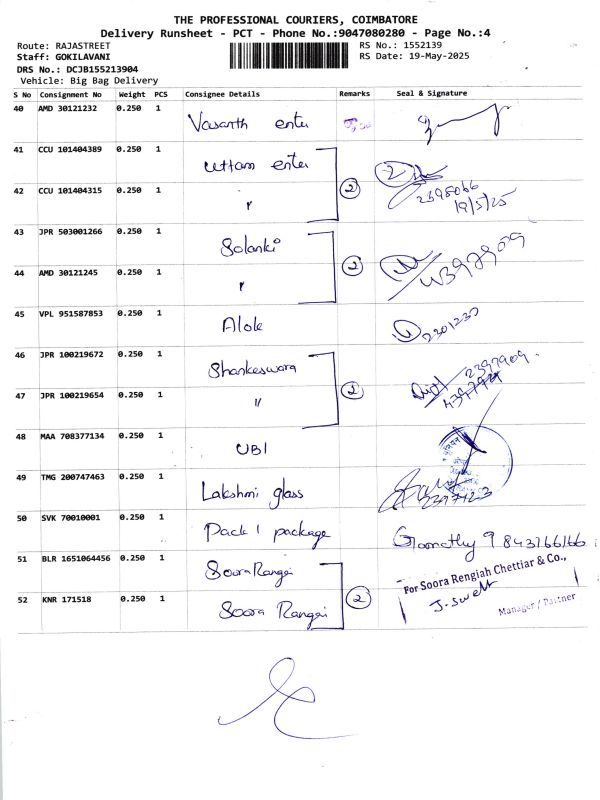 THE PROFESSIONAL COURIERS, COIMBATORE
Delivery Runsheet - PCT - Phone No.:9047080280 - Page No.:4
Route: RAJASTREET RS No.: 1552139
Staff: GOKILAVANI RS Date: 19-May-2025
DRS No.: DCJB155213904
Vehicle: Big Bag Delivery
S No Consignment No Weight PCS Consignee Details Remarks Seal & Signature
40 AMD 30121232 0.250 1 Vasanth enter
41 CCU 101404389 0.250 1 Uttam enter 2
42 CCU 101404315 0.250 1 " 2 2395066
19/5/25
43 JPR 503001266 0.250 1 Solanki
44 AMD 30121245 0.250 1 " 2
45 VPL 951587853 0.250 1 Alok 2301230
46 JPR 100219672 0.250 1 Shankeswara 2397909
47 JPR 100219654 0.250 1 " 2
48 MAA 708377134 0.250 1 UBI
49 TMG 200747463 0.250 1 Lakshmi glass 2397123
50 SVK 70010001 0.250 1 Pack 1 package Gomathy 9843766166
51 BLR 1651064456 0.250 1 Soora Rangai For Soora Rengiah Chettiar & Co.,
52 KNR 171518 0.250 1 Soora Rangai 2 J. Swett
Manager / Partner